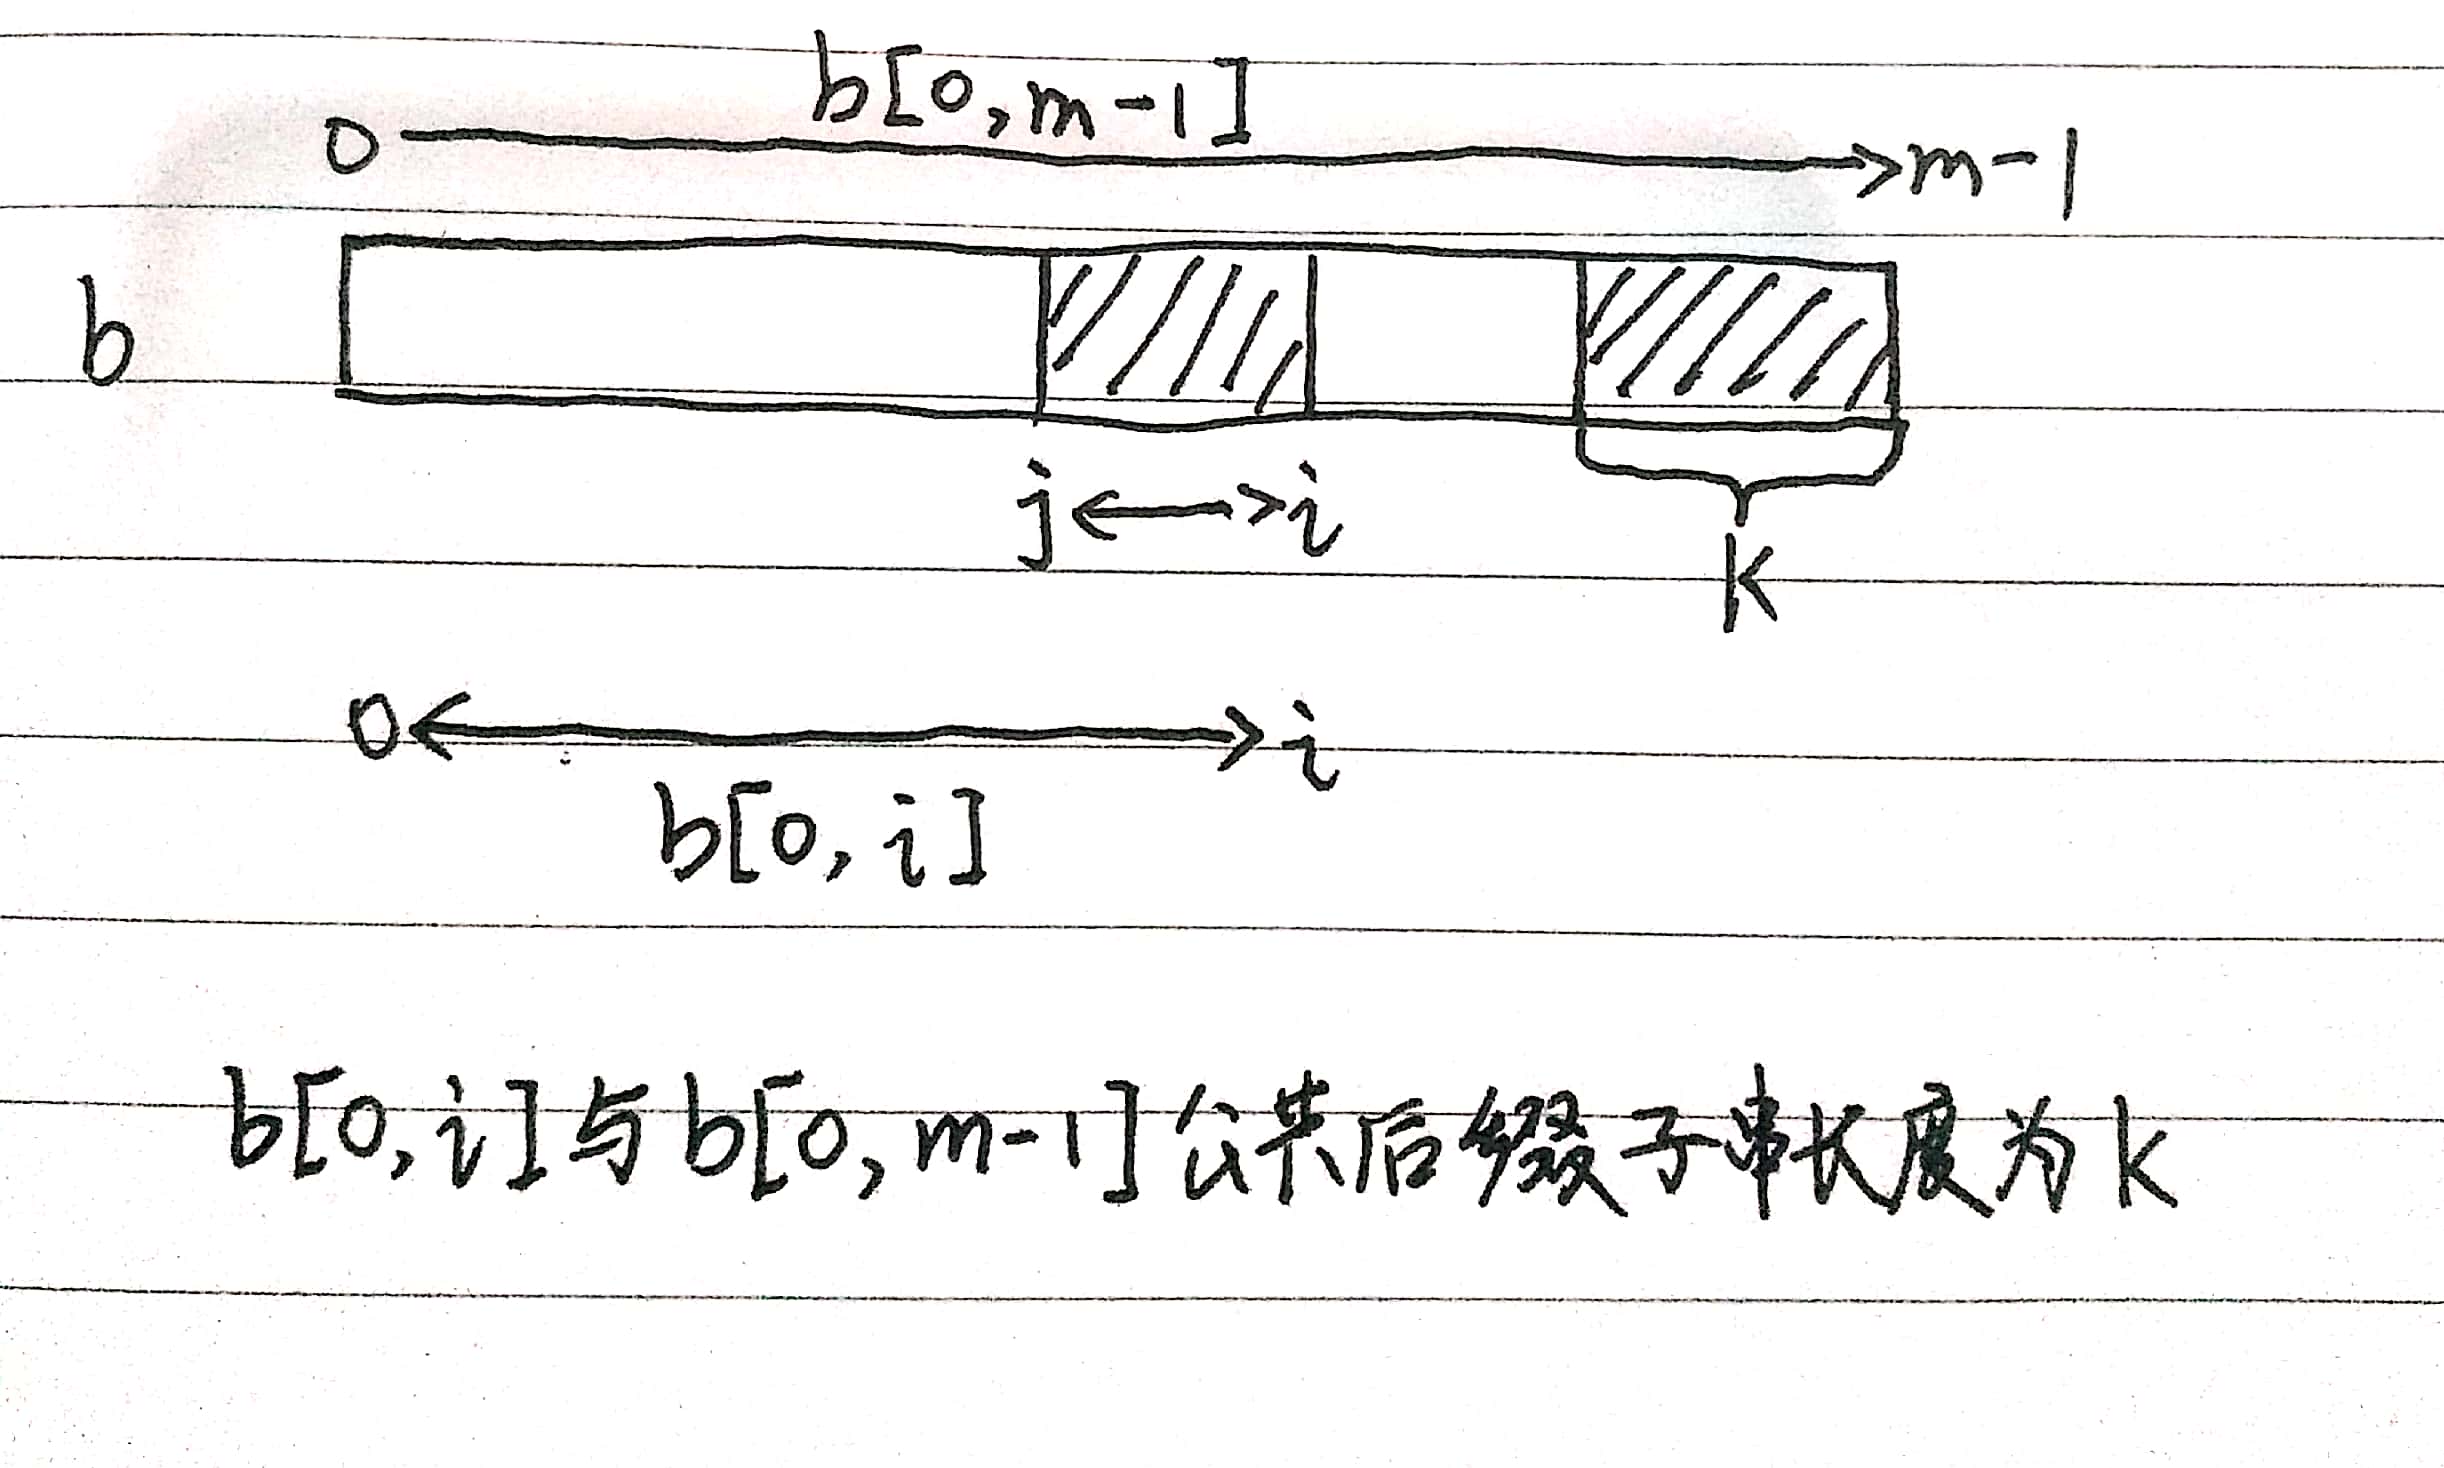 b[0,m-1]
0 m-1
b
j i
K
0 i
b[0,i]
b[0,i]与b[0,m-1]公共后缀子串长度为k